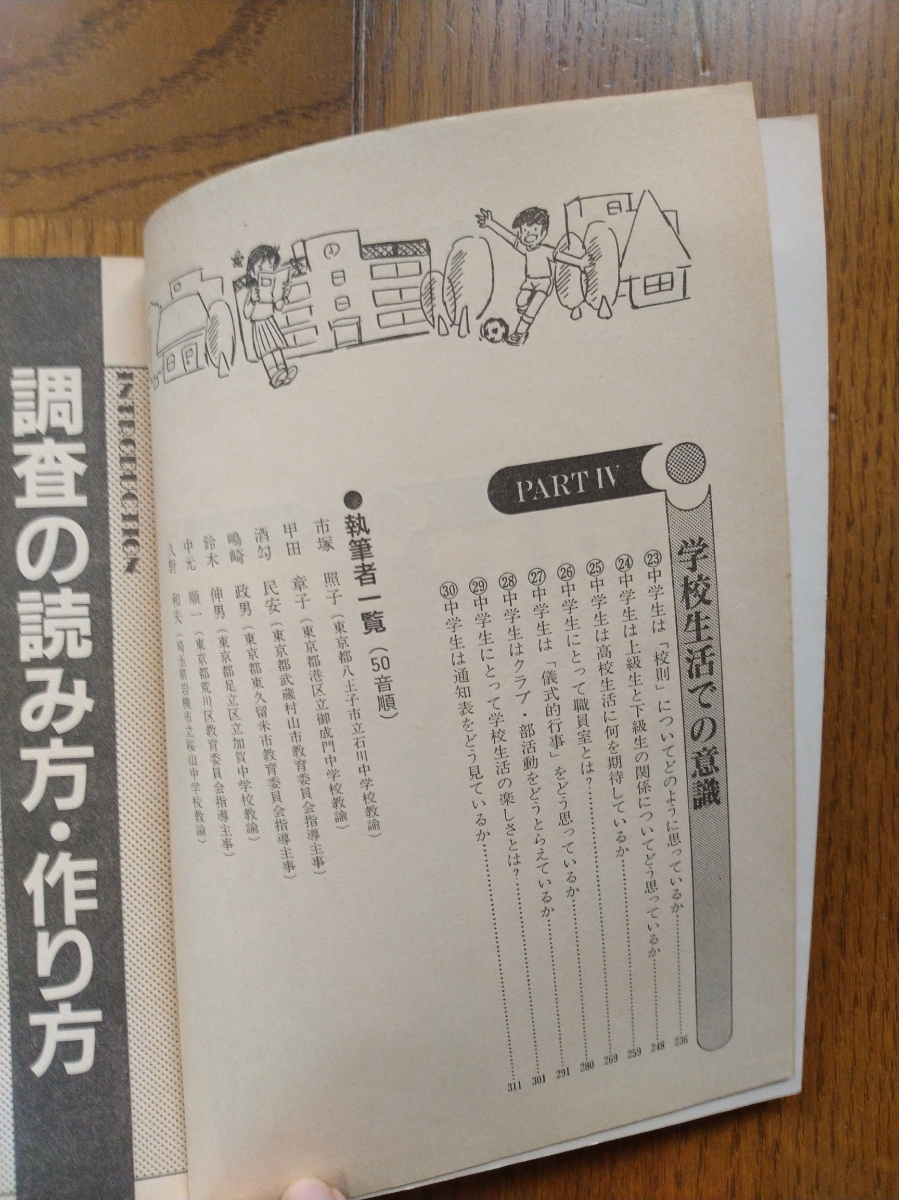 PART IV
学校生活での意識
㉓中学生は「校則」についてどのように思っているか…………236
㉔中学生は上級生と下級生の関係についてどう思っているか…………248
㉕中学生は高校生活に何を期待しているか…………259
㉖中学生にとって職員室とは?…………269
㉗中学生は「儀式的行事」をどう思っているか…………280
㉘中学生はクラブ・部活動をどうとらえているか…………291
㉙中学生にとって学校生活の楽しさとは?…………301
㉚中学生は通知表をどう見ているか…………311
●執筆者一覧(50音順)
市塚 照子(東京都八王子市立石川中学校教諭)
甲田 章子(東京都港区立御成門中学校教諭)
酒勾 民安(東京都武蔵村山市教育委員会指導主事)
嶋崎 政男(東京都東久留米市教育委員会指導主事)
鈴木 伸男(東京都足立区立加賀中学校教諭)
中元 順一(東京都荒川区教育委員会指導主事)
野 和夫(埼玉県岩槻市立桜山中学校教諭)
調査の読み方・作り方